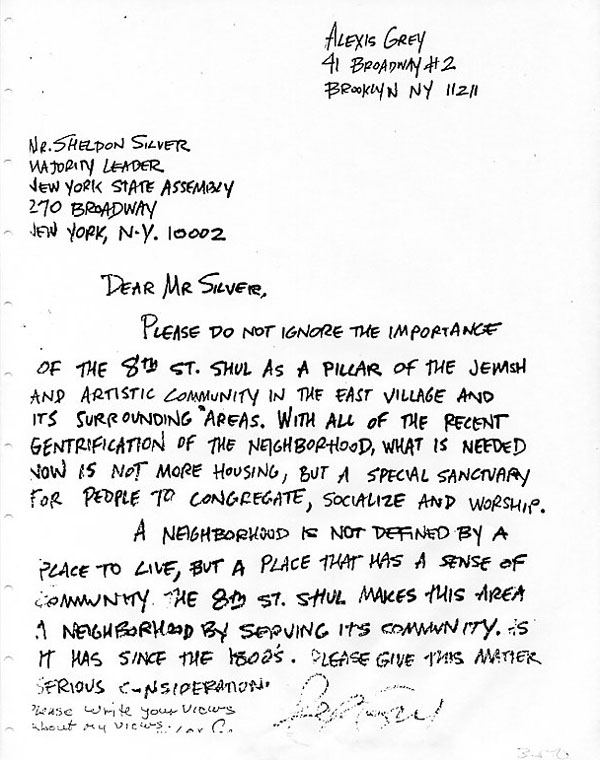 ALEXIS GREY
41 BROADWAY #2
BROOKLYN NY 11211
MR. SHELDON SILVER
MAJORITY LEADER
NEW YORK STATE ASSEMBLY
270 BROADWAY
NEW YORK, N.Y. 10002
DEAR MR SILVER,
PLEASE DO NOT IGNORE THE IMPORTANCE
OF THE 8TH ST. SHUL AS A PILLAR OF THE JEWISH
AND ARTISTIC COMMUNITY IN THE EAST VILLAGE AND
ITS SURROUNDING AREAS. WITH ALL OF THE RECENT
GENTRIFICATION OF THE NEIGHBORHOOD, WHAT IS NEEDED
NOW IS NOT MORE HOUSING, BUT A SPECIAL SANCTUARY
FOR PEOPLE TO CONGREGATE, SOCIALIZE AND WORSHIP.
A NEIGHBORHOOD IS NOT DEFINED BY A
PLACE TO LIVE, BUT A PLACE THAT HAS A SENSE OF
COMMUNITY. THE 8TH ST. SHUL MAKES THIS AREA
A NEIGHBORHOOD BY SERVING ITS COMMUNITY. AS
IT HAS SINCE THE 1800'S. PLEASE GIVE THIS MATTER
SERIOUS CONSIDERATION.
Please write your views
about my views.